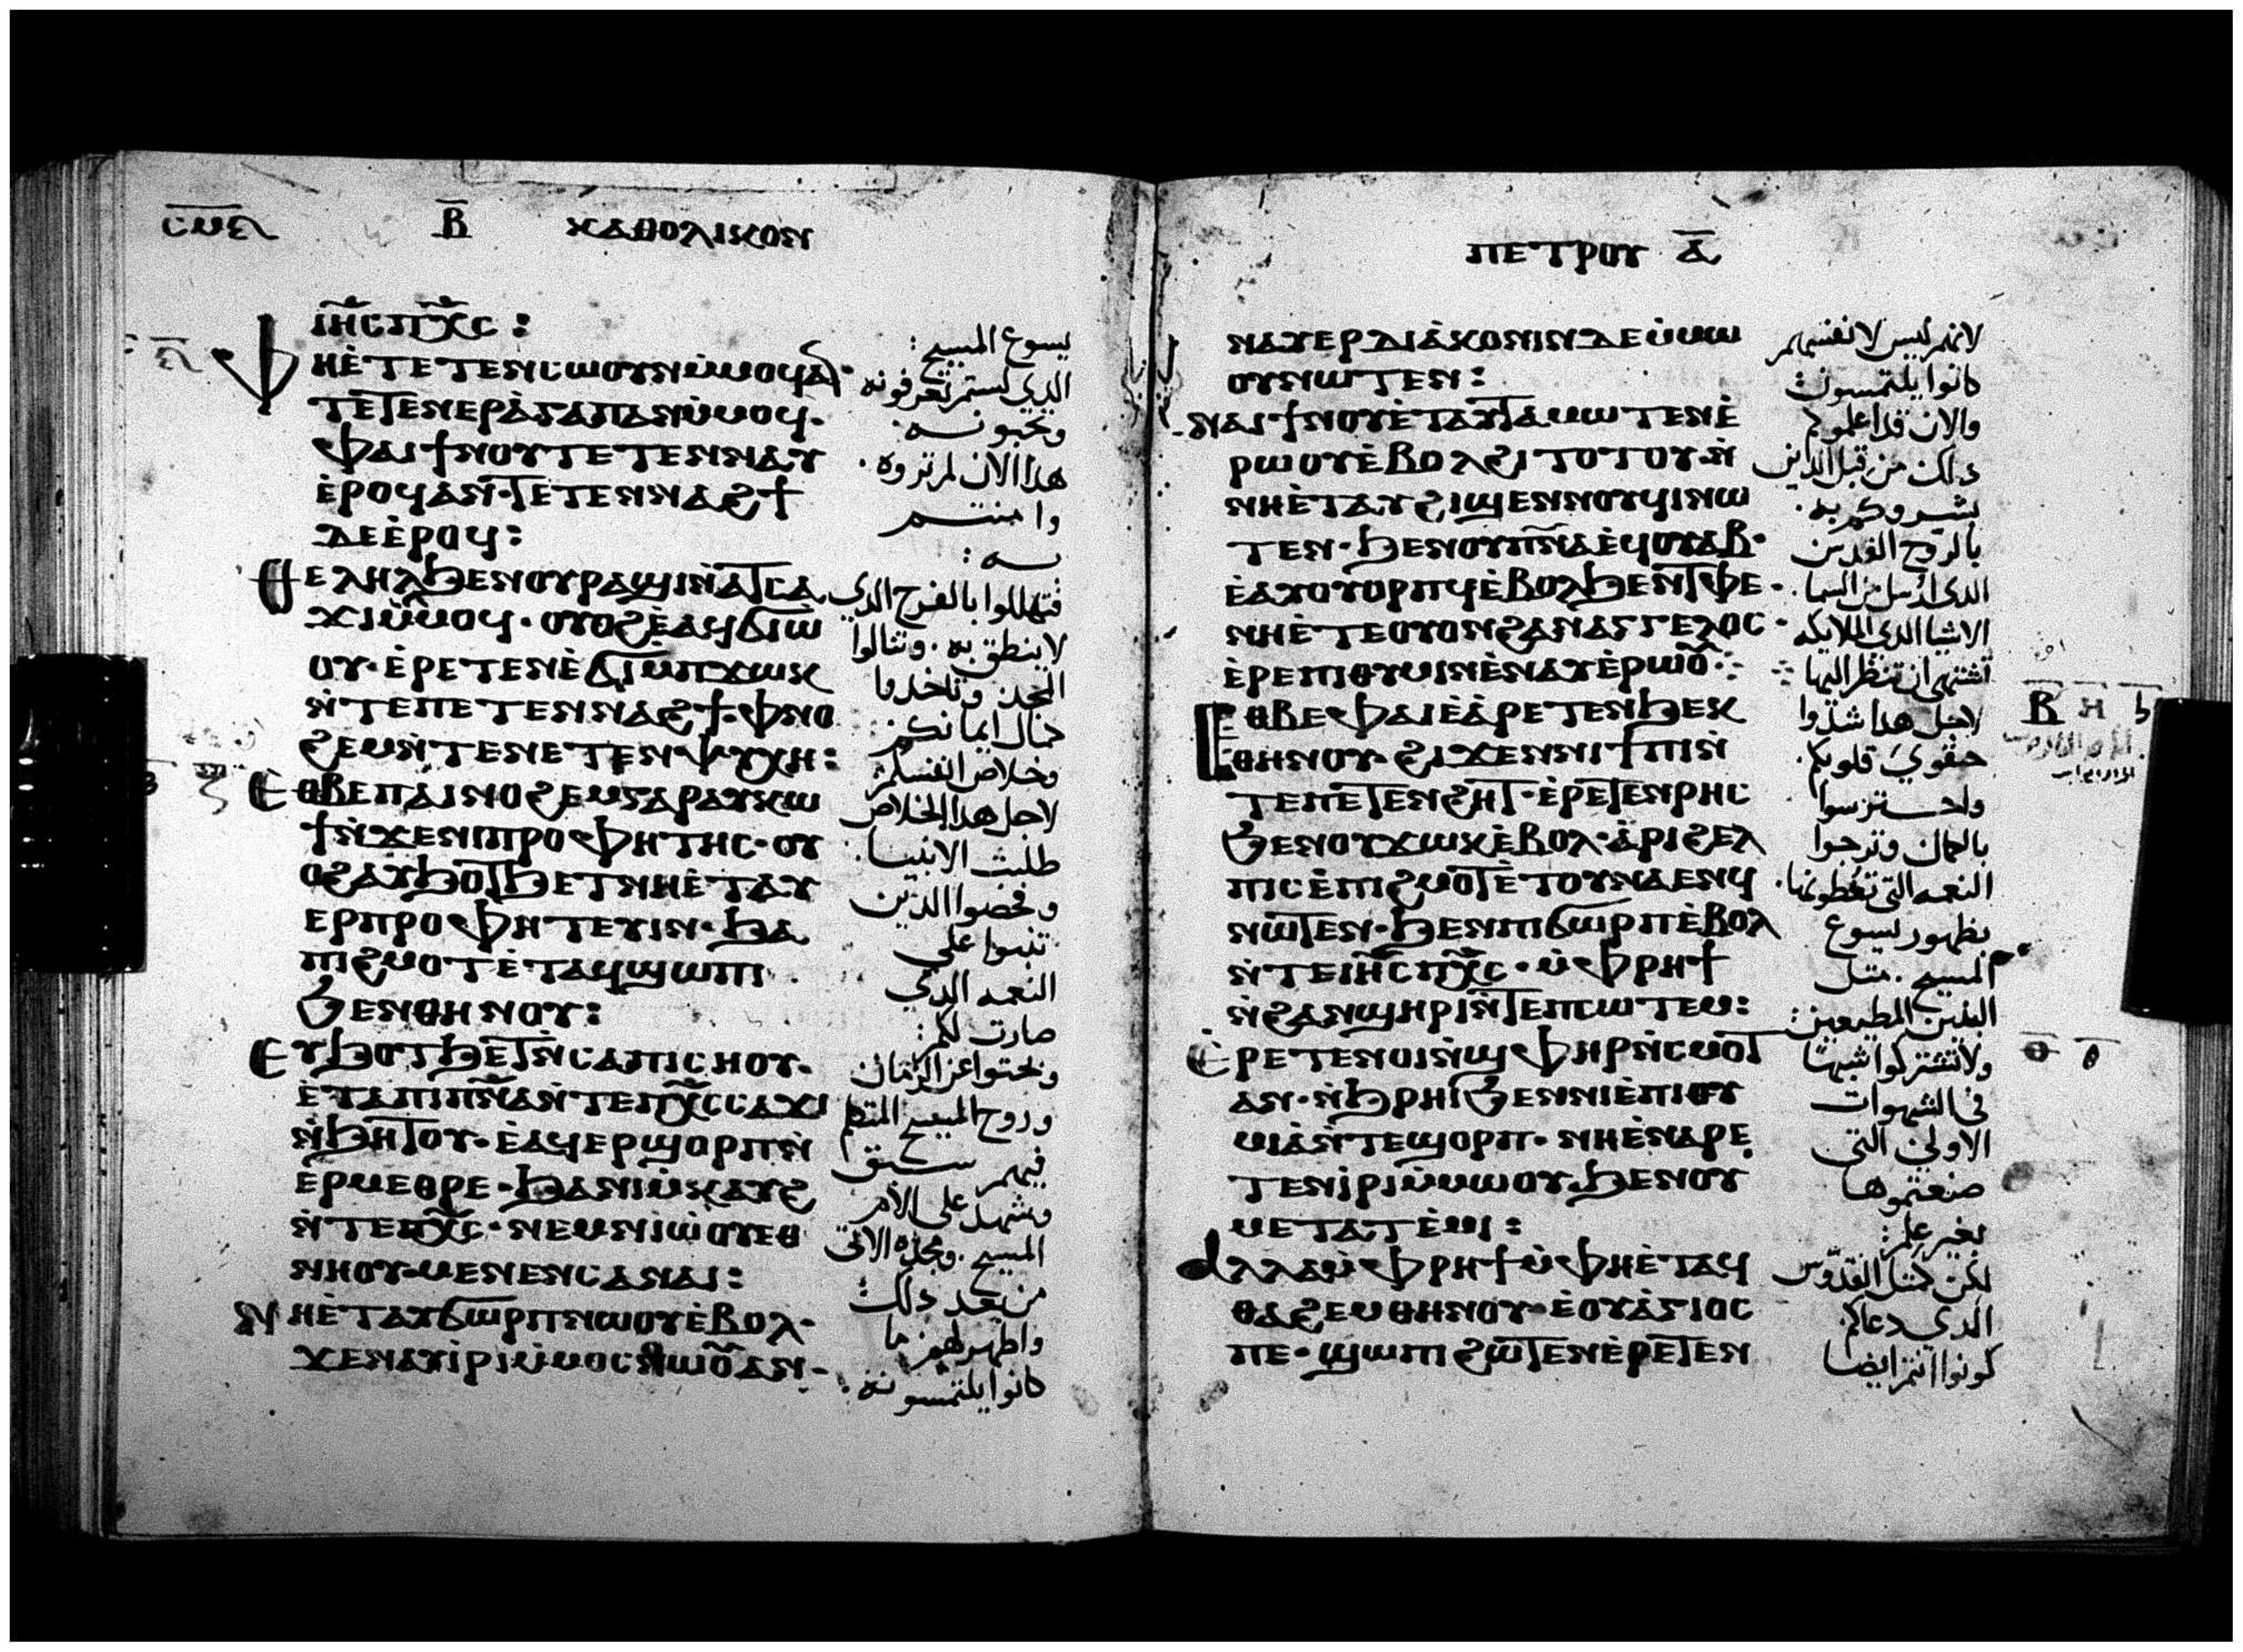 Ⲃ̅ ⲔⲀⲐⲞⲖⲒⲔⲞⲚ
ⲓⲏ̅ⲥ ⲡⲭ̅ⲥ :
Ⲫⲏⲉ̀ⲧⲉⲧⲉⲛⲥⲱⲟⲩⲛ ⲙ̀ⲙⲟϥ ⲁⲛ·
ⲧⲉⲧⲉⲛⲉⲣⲁ̀ⲅⲁⲡⲁⲛ ⲙ̀ⲙⲟϥ·
ⲫⲁⲓ ϯⲛⲟⲩ ⲧⲉⲧⲉⲛⲛⲁⲩ
ⲉ̀ⲣⲟϥ ⲁⲛ· ⲧⲉⲧⲉⲛⲛⲁϩϯ
ⲇⲉ ⲉ̀ⲣⲟϥ :
Ⲑⲉⲗⲏⲗ ϧⲉⲛ ⲟⲩⲣⲁϣⲓ ⲛ̀ⲁⲧⲥⲁ
ϫⲓ ⲙ̀ⲙⲟϥ· ⲟⲩⲟϩ ⲉ̀ⲁϥϭⲓⲱ̀
ⲟⲩ· ⲉ̀ⲣⲉⲧⲉⲛⲉ̀ϭⲓ ⲙ̀ⲡϫⲱⲕ
ⲛ̀ⲧⲉ ⲡⲉⲧⲉⲛⲛⲁϩϯ· ⲫⲛⲟ
ϩⲉⲙ ⲛ̀ⲧⲉ ⲛⲉⲧⲉⲛⲯⲩⲭⲏ :
Ⲉⲑⲃⲉ ⲡⲁⲓⲛⲟϩⲉⲙ ⲅⲁⲣ ⲁⲩⲕⲱ
ϯ ⲛ̀ϫⲉ ⲛⲓⲡⲣⲟⲫⲏⲧⲏⲥ· ⲟⲩ
ⲟϩ ⲁⲩϧⲟⲧϧⲉⲧ ⲛⲏⲉ̀ⲧⲁⲩ
ⲉⲣⲡⲣⲟⲫⲏⲧⲉⲩⲓⲛ· ϧⲁ
ⲡⲓϩⲙⲟⲧ ⲉ̀ⲧⲁϥϣⲱⲡⲓ
ϧⲉⲛ ⲑⲏⲛⲟⲩ :
Ⲉⲩϧⲟⲧϧⲉⲧ ⲛ̀ⲥⲁ ⲡⲓⲥⲏⲟⲩ·
ⲉ̀ⲧⲁ ⲡⲓⲡⲛ̅ⲁ ⲛ̀ⲧⲉ ⲡⲭ̅ⲥ ⲥⲁϫⲓ
ⲛ̀ϧⲏⲧⲟⲩ· ⲉ̀ⲁϥⲉⲣϣⲟⲣⲡ ⲛ̀
ⲉ̀ⲣⲙⲉⲑⲣⲉ· ϧⲁ ⲛⲓⲙ̀ⲕⲁⲩϩ
ⲛ̀ⲧⲉ ⲡⲭ̅ⲥ· ⲛⲉⲙ ⲛⲓⲱ̀ⲟⲩ ⲉⲑ
ⲛⲏⲟⲩ ⲙⲉⲛⲉⲛⲥⲁ ⲛⲁⲓ :
Ⲛⲏⲉ̀ⲧⲁⲩϭⲱⲣⲡ ⲛⲱⲟⲩ ⲉ̀ⲃⲟⲗ·
ϫⲉ ⲛⲁⲩⲓ̀ⲣⲓ ⲙ̀ⲙⲟⲥ ⲛⲱⲟⲩ ⲁⲛ·
يسوع المسيح :
الدي لستم تعرفونه
وتحبونه .
هدا الان لم تروه .
وامنتم
به :
فتهللوا بالفرح الدي
لا ينطق به . ونالوا
المجد وتاخدوا
كمال ايمانكم
وخلاص انفسكم :
لاجل هدا الخلاص
طلبت الانبيا .
وفحصوا الدين
تنبوا على
النعمه الدي
صارت لكم :
وبحثوا عن الزمان
وروح المسيح المتكلم
فيهم سبق
وشهد على الام
المسيح . ومجده الاتي
من بعد دلك
واظهر لهم ما
كانوا يلتمسونه .
ⲠⲈⲦⲢⲞⲨ Ⲁ̅
ⲛⲁⲩⲉⲣⲇⲓⲁ̀ⲕⲟⲛⲓⲛ ⲇⲉ ⲙ̀ⲙⲱ
ⲟⲩ ⲛⲱⲧⲉⲛ :
ⲛⲁⲓ ϯⲛⲟⲩ ⲉ̀ⲧⲁⲩⲧⲁⲙⲱⲧⲉⲛ ⲉ̀
ⲣⲱⲟⲩ ⲉ̀ⲃⲟⲗ ϩⲓⲧⲟⲧⲟⲩ ⲛ̀
ⲛⲏⲉ̀ⲧⲁⲩϩⲓϣⲉⲛⲛⲟⲩϥⲓ ⲛⲱ
ⲧⲉⲛ· ϧⲉⲛ ⲟⲩⲡⲛ̅ⲁ ⲉ̀ϥⲟⲩⲁⲃ·
ⲉ̀ⲁⲩⲟⲩⲟⲣⲡϥ ⲉ̀ⲃⲟⲗ ϧⲉⲛ ⲧⲫⲉ·
ⲛⲏⲉ̀ⲧⲉ ⲟⲩⲟⲛ ϩⲁⲛⲁⲅⲅⲉⲗⲟⲥ·
ⲉ̀ⲣⲉⲡⲓⲑⲩⲙⲓⲛ ⲉ̀ⲛⲁⲩ ⲉ̀ⲣⲱⲟⲩ :
Ⲉⲑⲃⲉ ⲫⲁⲓ ⲉ̀ⲁ̀ⲣⲉⲧⲉⲛϧⲉⲕ
ⲑⲏⲛⲟⲩ· ϩⲓϫⲉⲛ ⲛⲓϯⲡⲓ ⲛ̀
ⲧⲉ ⲡⲉⲧⲉⲛϩⲏⲧ· ⲉ̀ⲣⲉⲧⲉⲛⲣⲏⲥ
ϧⲉⲛ ⲟⲩϫⲱⲕ ⲉ̀ⲃⲟⲗ· ⲁ̀ⲣⲓϩⲉⲗ
ⲡⲓⲥ ⲉ̀ⲡⲓϩⲙⲟⲧ ⲉ̀ⲧⲟⲩⲛⲁⲉⲛϥ
ⲛⲱⲧⲉⲛ· ϧⲉⲛ ⲡϭⲱⲣⲡ ⲉ̀ⲃⲟⲗ
ⲛ̀ⲧⲉ ⲓⲏ̅ⲥ ⲡⲭ̅ⲥ· ⲙ̀ⲫⲣⲏϯ
ⲛ̀ϩⲁⲛϣⲏⲣⲓ ⲛ̀ⲧⲉ ⲡⲥⲱⲧⲉⲙ :
Ⲉ̀ⲣⲉⲧⲉⲛⲟⲓ ⲛ̀ϣⲫⲏⲣ ⲛ̀ⲥⲙⲟⲧ
ⲁⲛ· ⲛ̀ϧⲣⲏⲓ ϧⲉⲛ ⲛⲓⲉ̀ⲡⲓⲑⲩ
ⲙⲓⲁ̀ ⲛ̀ⲧⲉ ϣⲟⲣⲡ· ⲛⲏⲉ̀ⲛⲁⲣⲉ
ⲧⲉⲛⲓ̀ⲣⲓ ⲙ̀ⲙⲱⲟⲩ ϧⲉⲛ ⲟⲩ
ⲙⲉⲧⲁⲧⲉ̀ⲙⲓ :
Ⲁⲗⲗⲁ ⲙ̀ⲫⲣⲏϯ ⲙ̀ⲫⲏⲉ̀ⲧⲁϥ
ⲑⲁϩⲉⲙ ⲑⲏⲛⲟⲩ· ⲉ̀ⲟⲩⲁ̀ⲅⲓⲟⲥ
ⲡⲉ· ϣⲱⲡⲓ ϩⲱⲧⲉⲛ ⲉ̀ⲣⲉⲧⲉⲛ
لانهم ليس لانفسهم
كانوا يلتمسون
والان قد اعلموكم
دلك من قبل الدين
بشروكم به .
بالروح القدس
الدى ارسل من السما .
الاشيا الدى الملايكه
تشتهي ان تنظر اليها
لاجل هدا شدوا
حقوي قلوبكم .
واحترسوا
بالكمال وترجوا
النعمه التى تعطونها .
بظهور يسوع
المسيح . متل
البنين المطيعين :
ولا تشتركوا شبها
في الشهوات
الاولى التى
صنعتموها
بغير علم :
لكن كمتل القدوس
الدي دعاكم
كونوا انتم ايضا
Ⲃ̅ Ⲏ̅
Ⲑ̅